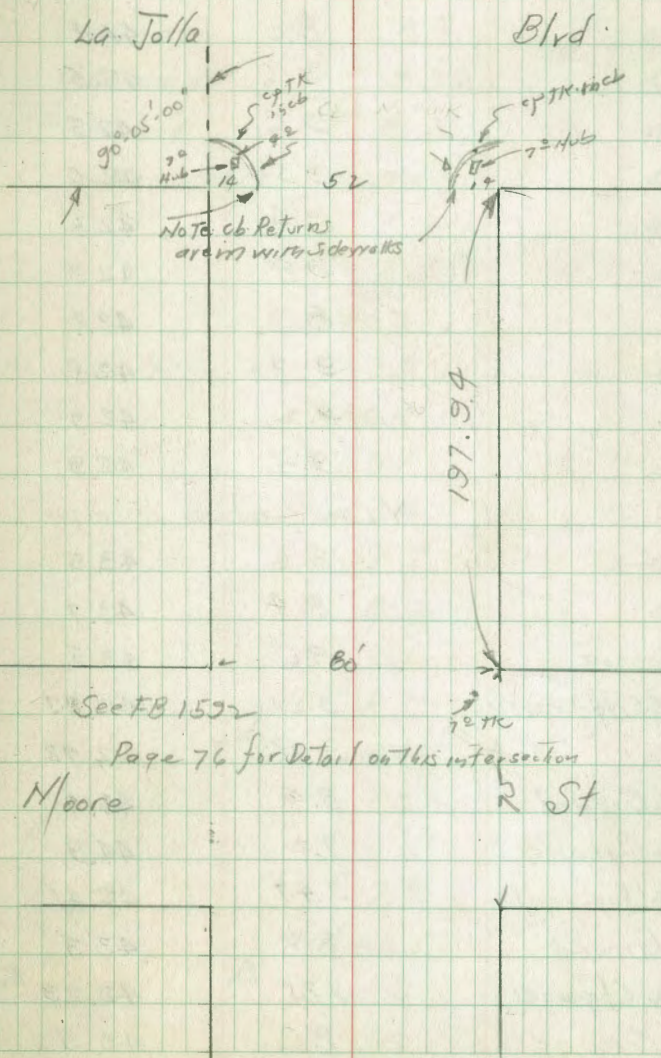 La Jolla Blvd.
90°-05'-00"
cp TK
in cb
Hub
14
52
cp TK in cb
Hub
14
Note cb Returns
are in with sidewalks
197.94
80'
See FB 1592
Page 76 for Detail on this intersection
TK
Moore St